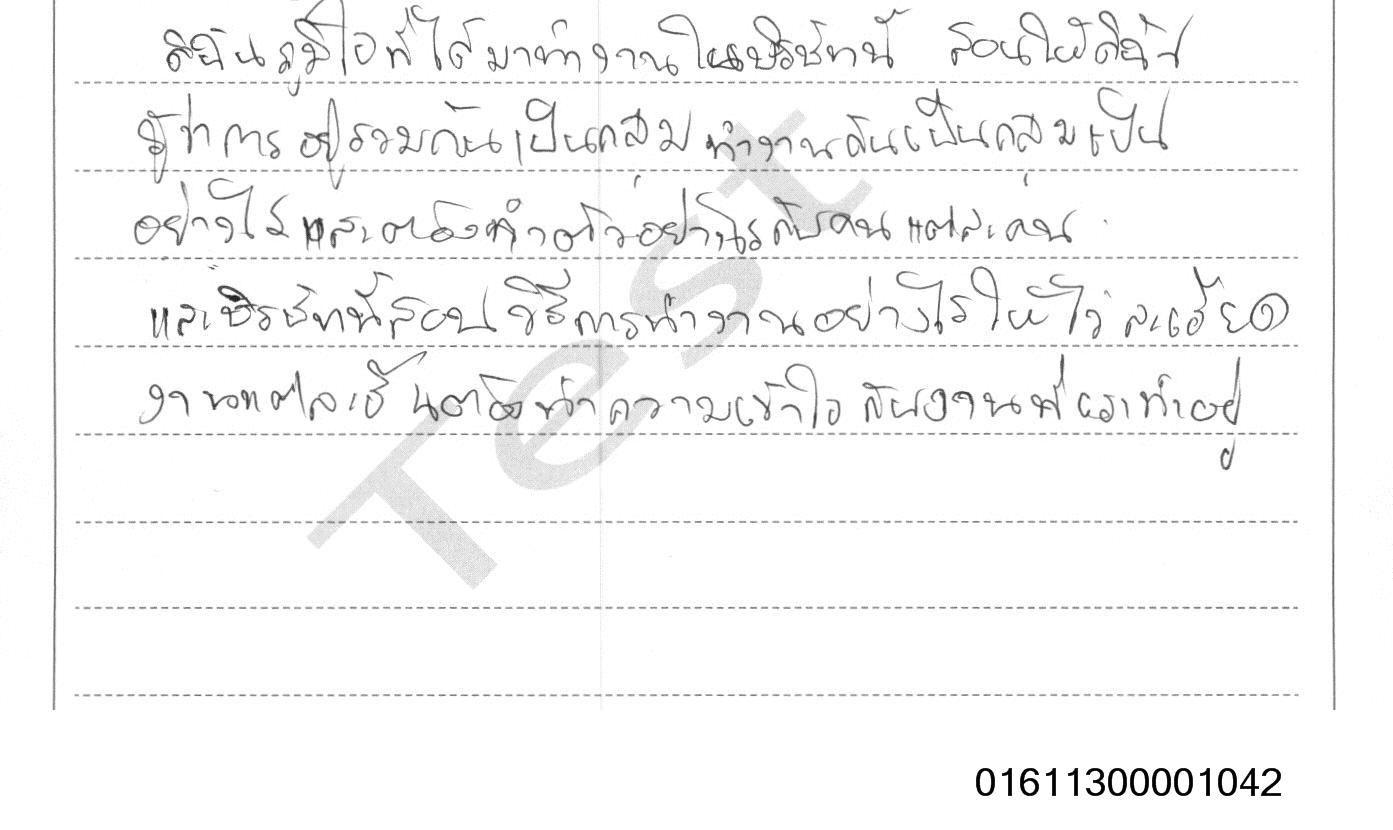 ดิฉันภูมิใจที่ได้มาทำงานในบริษัทนี้ สอนให้ดิฉัน
รู้ว่าการอยู่รวมกันเป็นกลุ่ม ทำงานกันเป็นกลุ่มเป็น
อย่างไร และต้องทำตัวอย่างไรกับคนแต่ละคน
และบริษัทนี้สอน วิธีการทำงานอย่างไรให้ไว ละเอียด
งานแต่ละชิ้นต้องทำความเข้าใจ กับงานที่เราทำอยู่
Test
01611300001042